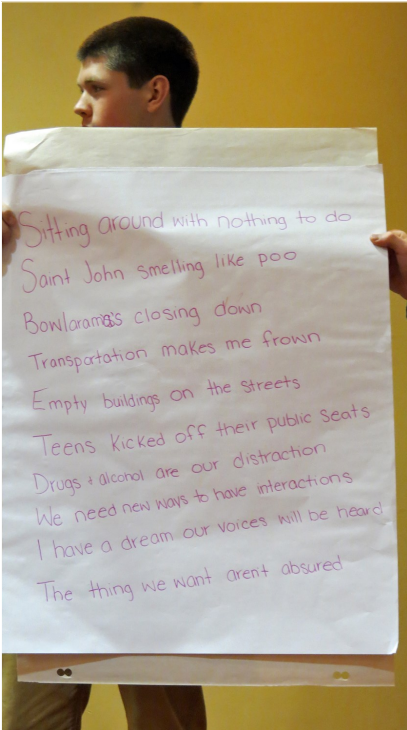 Sitting around with nothing to do
Saint John smelling like poo
Bowlarama's closing down
Transportation makes me frown
Empty buildings on the streets
Teens kicked off their public seats
Drugs + alcohol are our distraction
We need new ways to have interactions
I have a dream our voices will be heard
The thing we want arent absured